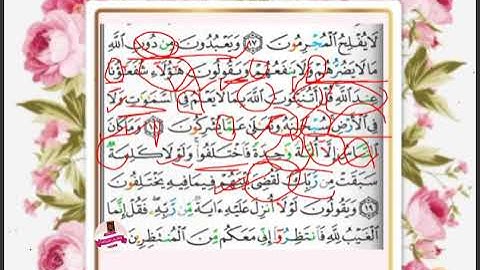 لَا يُفْلِحُ الْمُجْرِمُونَ ١٧ وَيَعْبُدُونَ مِن دُونِ اللَّهِ
مَا لَا يَضُرُّهُمْ وَلَا يَنفَعُهُمْ وَيَقُولُونَ هَٰؤُلَاءِ شُفَعَاؤُنَا
عِندَ اللَّهِ قُلْ أَتُنَبِّئُونَ اللَّهَ بِمَا لَا يَعْلَمُ فِي السَّمَاوَاتِ وَلَا
فِي الْأَرْضِ سُبْحَانَهُ وَتَعَالَىٰ عَمَّا يُشْرِكُونَ ١٨ وَمَا كَانَ
النَّاسُ إِلَّا أُمَّةً وَاحِدَةً فَاخْتَلَفُوا وَلَوْلَا كَلِمَةٌ
سَبَقَتْ مِن رَّبِّكَ لَقُضِيَ بَيْنَهُمْ فِيمَا فِيهِ يَخْتَلِفُونَ
١٩ وَيَقُولُونَ لَوْلَا أُنزِلَ عَلَيْهِ آيَةٌ مِّن رَّبِّهِ فَقُلْ إِنَّمَا
الْغَيْبُ لِلَّهِ فَانتَظِرُوا إِنِّي مَعَكُم مِّنَ الْمُنتَظِرِينَ